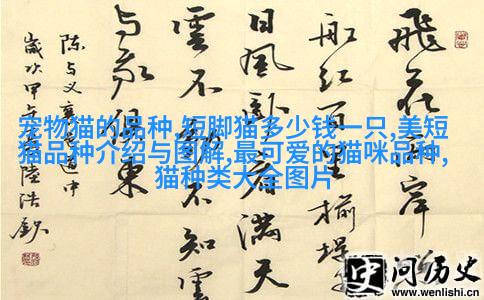 飛花兩岸
船红百里榆堤
日風卧看满天
雲不動不知雲
与我俱東
陈与义襄邑道中
宠物猫的品种,短脚猫多少钱一只,美短
猫品种介绍与图解,最可爱的猫咪品种,
猫种类大全图片
史问历史
www.wenlishi.cn